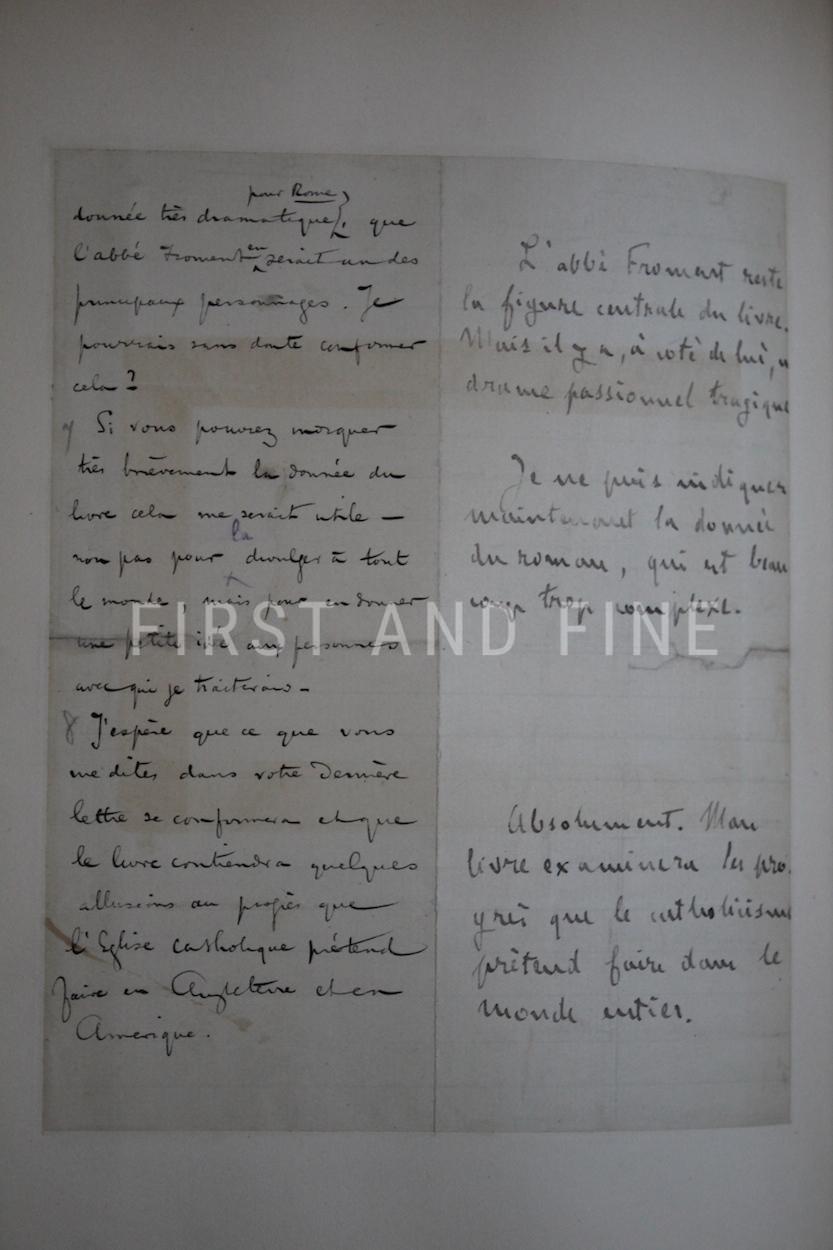 pour Rome,
donnée très dramatique, que
l'abbé Froment en serait un des
principaux personnages. Je
pourrais sans doute confirmer
cela ?
7 Si vous pouvez marquer
très brièvement la donnée du
livre cela me serait utile —
non pas pour la divulger à tout
le monde, mais pour en donner
une petite idée aux personnes
avec qui je traiterais —
8 J'espère que ce que vous
me dites dans votre dernière
lettre se confirmera et que
le livre contiendra quelques
allusions au progrès que
l'Eglise catholique prétend
faire en Angleterre et en
Amérique.
L'abbé Froment reste
la figure centrale du livre.
Mais il y a, à côté de lui, u
drame passionnel tragique
Je ne puis indiquer
maintenant la donnée
du roman, qui est beau
coup trop complexe.
Absolument. Mon
livre examinera les pro.
grès que le catholicisme
prétend faire dans le
monde entier.
FIRST AND FINE